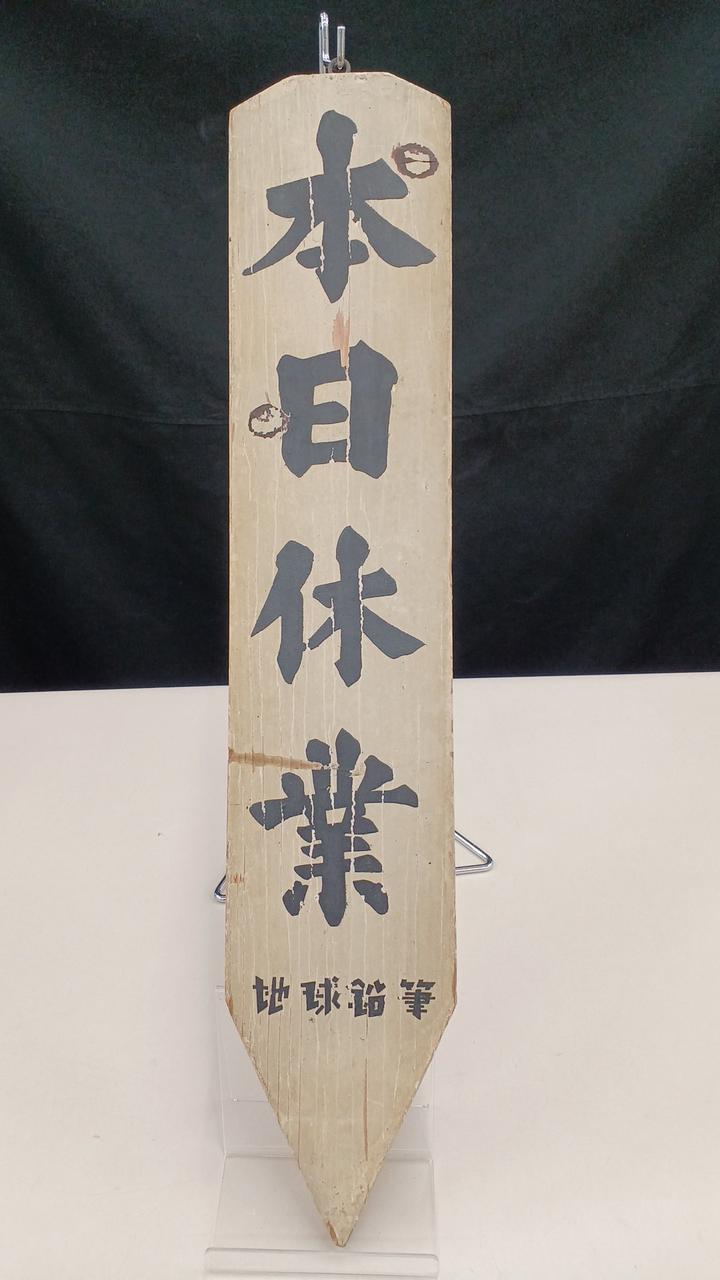 本日休業
地球鉛筆